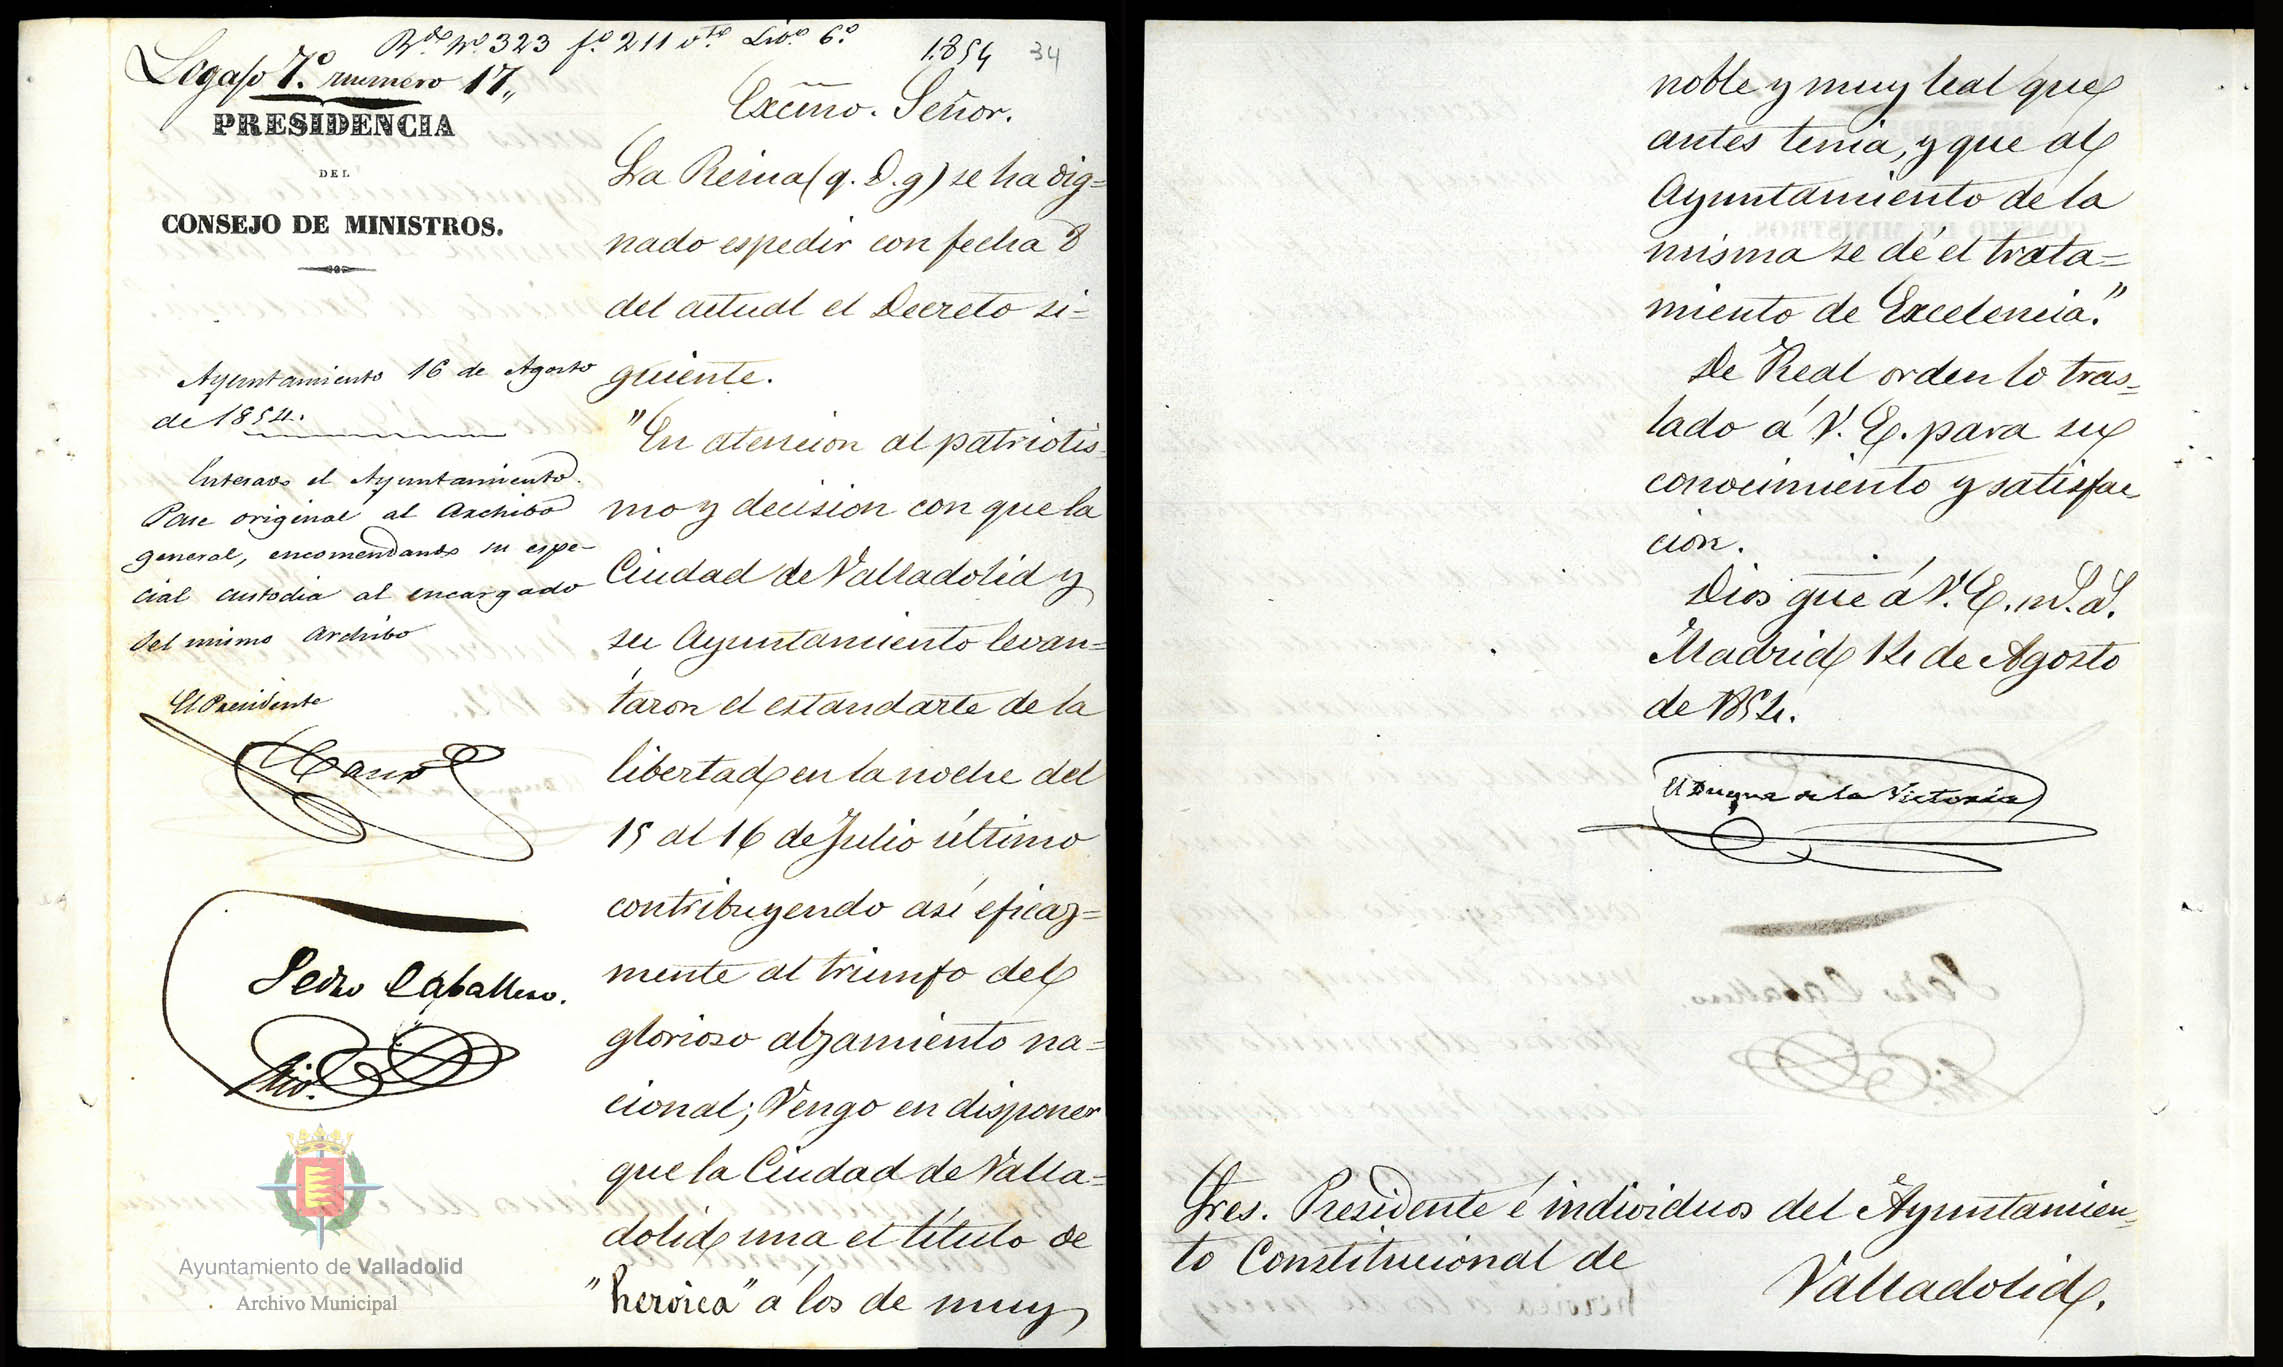 Rdo No. 323 fo. 211 vto Libo. 6o.
1.854 34
Legajo 7o. numero 17,,
PRESIDENCIA
DEL
CONSEJO DE MINISTROS.
Ayuntamiento 16 de Agosto
de 1854.
Enterado el Ayuntamiento.
Pase original al Archibo
general, encomendando su espe-
cial custodia al encargado
del mismo Archibo
El Presidente
Pedro Caballero.
Srio.
Ayuntamiento de Valladolid
Archivo Municipal
Excmo. Señor.
La Reina (q. D. g) se ha dig=
nado espedir con fecha 8
del actual el Decreto si=
guiente.
"En atencion al patriotis
mo y decision con que la
Ciudad de Valladolid y
su Ayuntamiento levan=
taron el estandarte de la
libertad en la noche del
15 al 16 de Julio último
contribuyendo asi eficaz=
mente al triunfo del
glorioso alzamiento na=
cional; Vengo en disponer
que la Ciudad de Valla=
dolid una el título de
"heroica" á los de muy
noble y muy leal que
antes tenia, y que al
Ayuntamiento de la
misma se dé el trata=
miento de Excelencia."
De Real orden lo tras=
lado á V. E. para su
conocimiento y satisfac
cion.
Dios gue á V. E. m. a.
Madrid 14 de Agosto
de 1854.
El Duque de la Victoria
Sres. Presidente é individuos del Ayuntamien=
to Constitucional de
Valladolid.